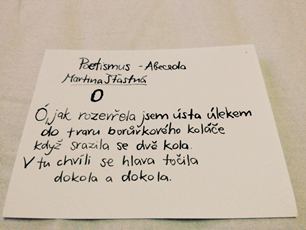 Poetismus - Abeceda
Martina Šťastná
O
Ó, jak rozevřela jsem ústa úlekem
do tvaru borůvkového koláče
když srazila se dvě kola.
V tu chvíli se hlava točila
dokola a dokola.